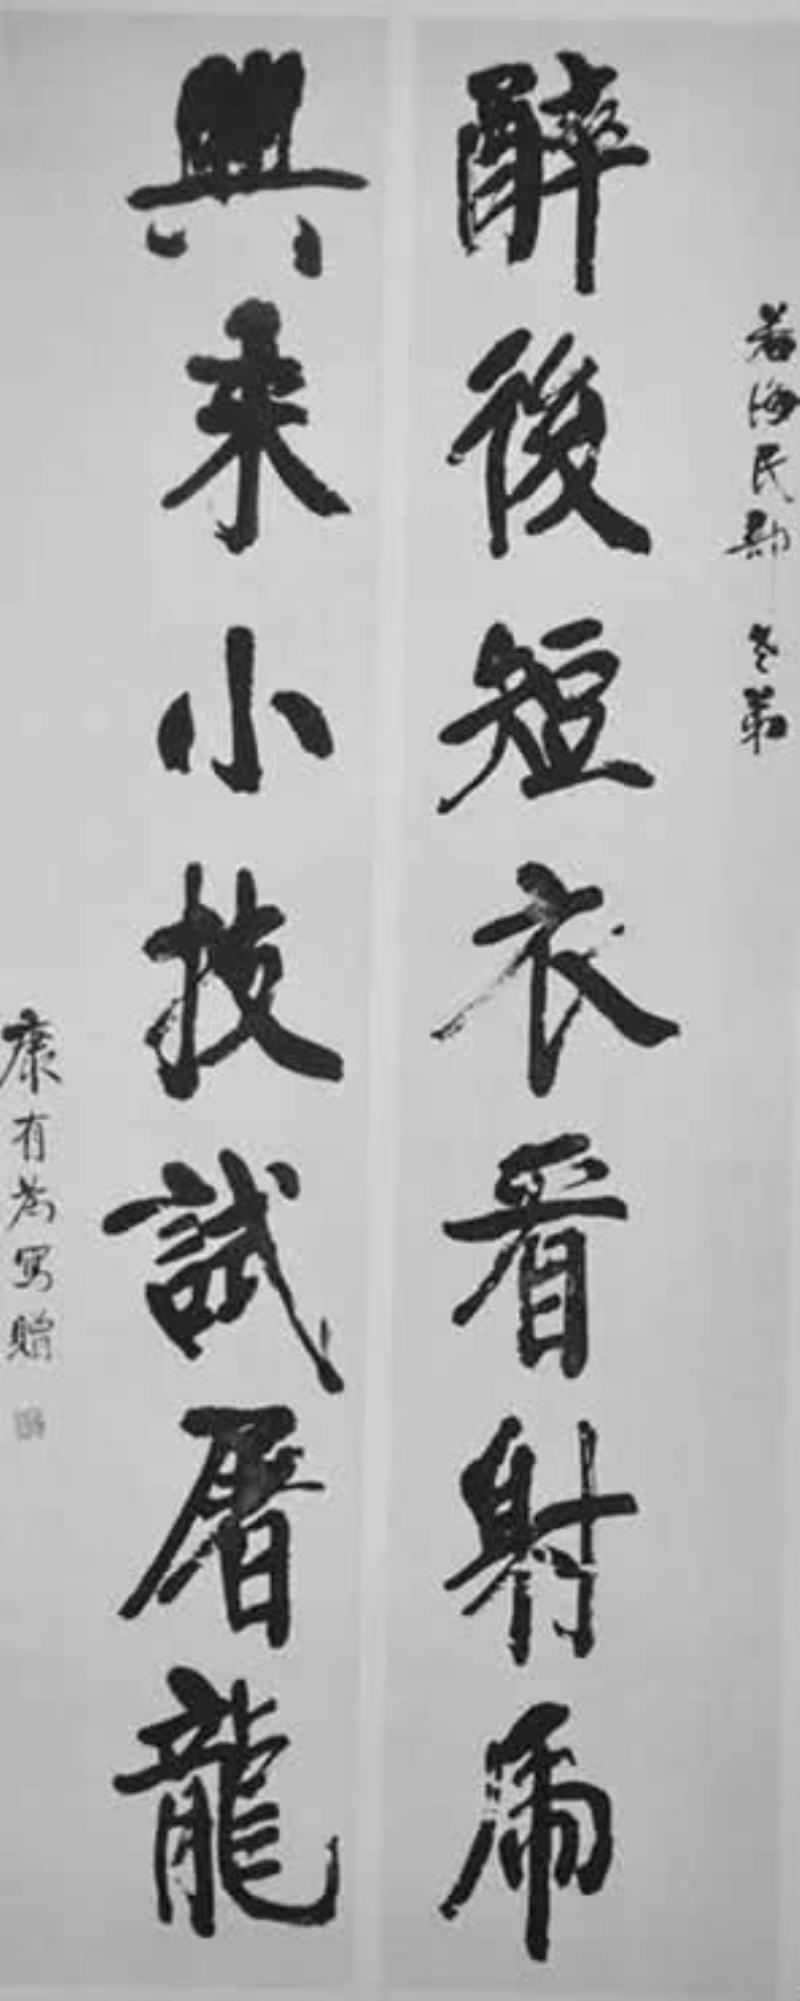 若海民部老弟
醉後短衣看射虎
興来小技試屠龍
康有為写贈